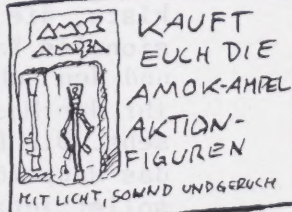 AMOK
AMPEL
KAUFT
EUCH DIE
AMOK-AMPEL
AKTION-
FIGUREN
MIT LICHT, SOUND UND GERUCH